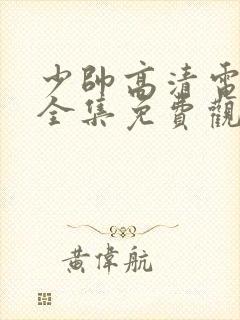 少帥高清電
全集免費觀
黃偉航